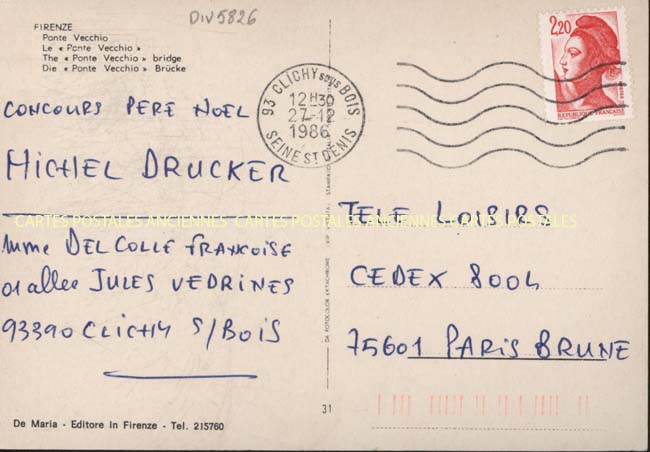 DIV5826
FIRENZE
Ponte Vecchio
Le « Ponte Vecchio »
The « Ponte Vecchio » bridge
Die « Ponte Vecchio » Brücke
CONCOURS PERE NOEL
MICHEL DRUCKER
Mme DELCOLLE FRANCOISE
01 allee JULES VEDRINES
93390 CLICHY S/BOIS
De Maria - Editore in Firenze - Tel. 215760
93 CLICHY sous BOIS
12H30
27-12
1986
SEINE ST DENIS
2,20
REPUBLIQUE FRANÇAISE
DA FOTOCOLOR EKTACHROME
31
TELE LOISIRS
CEDEX 8004
75601 PARIS BRUNE
CARTES POSTALES ANCIENNES CARTES POSTALES ANCIENNES CARTES POSTALES